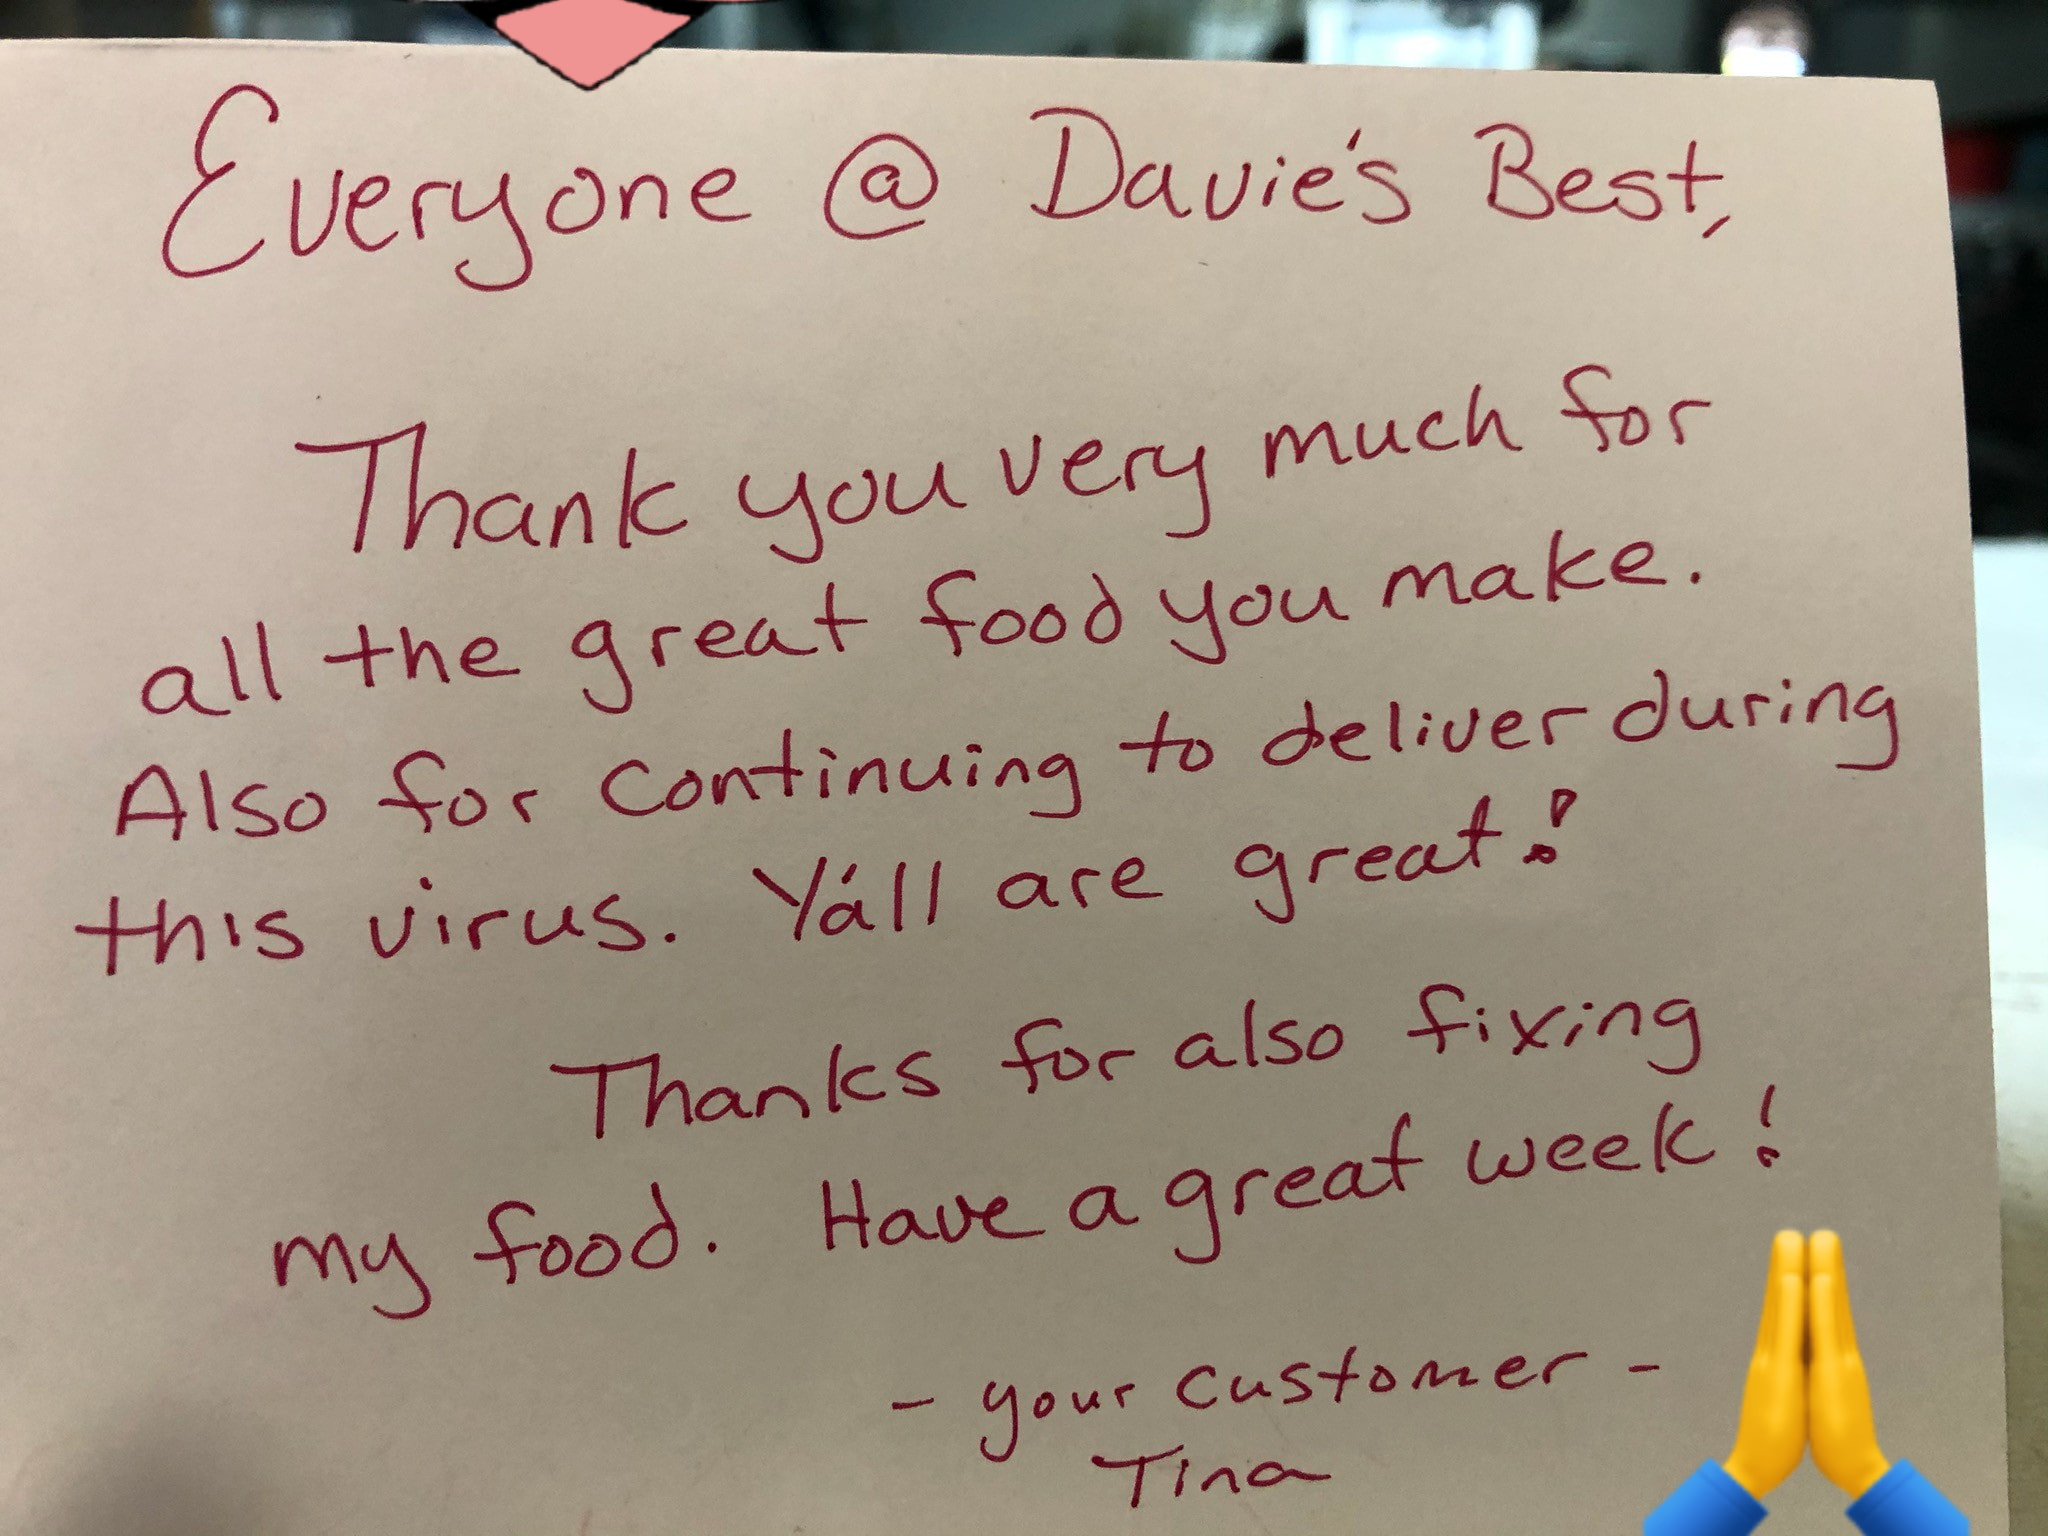 Everyone @ Davie's Best,
Thank you very much for
all the great food you make.
Also for continuing to deliver during
this virus. Y'all are great!
Thanks for also fixing
my food. Have a great week!
- your customer -
Tina